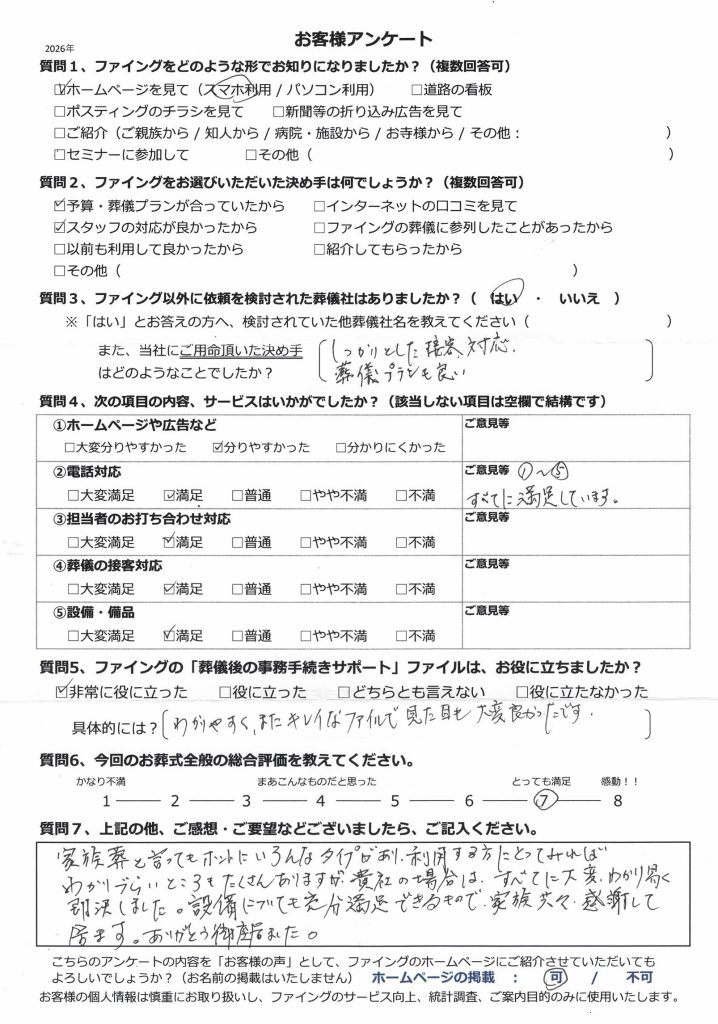 お客様アンケート
2026年
質問１、ファイングをどのような形でお知りになりましたか？（複数回答可）
☑ホームページを見て（スマホ利用 / パソコン利用）　□道路の看板
□ポスティングのチラシを見て　□新聞等の折り込み広告を見て
□ご紹介（ご親族から / 知人から / 病院・施設から / お寺様から / その他：　）
□セミナーに参加して　□その他（　）
質問２、ファイングをお選びいただいた決め手は何でしょうか？（複数回答可）
☑予算・葬儀プランが合っていたから　□インターネットの口コミを見て
☑スタッフの対応が良かったから　□ファイングの葬儀に参列したことがあったから
□以前も利用して良かったから　□紹介してもらったから
□その他（　）
質問３、ファイング以外に依頼を検討された葬儀社はありましたか？（　はい　・　いいえ　）
※「はい」とお答えの方へ、検討されていた他葬儀社名を教えてください（　）
また、当社にご用命頂いた決め手
はどのようなことでしたか？
しっかりとした接客対応.
葬儀プランも良い
質問４、次の項目の内容、サービスはいかがでしたか？（該当しない項目は空欄で結構です）
①ホームページや広告など　ご意見等
□大変分りやすかった　☑分りやすかった　□分かりにくかった
②電話対応　ご意見等　①〜⑤
□大変満足　☑満足　□普通　□やや不満　□不満　すべてに満足しています。
③担当者のお打ち合わせ対応　ご意見等
□大変満足　☑満足　□普通　□やや不満　□不満
④葬儀の接客対応　ご意見等
□大変満足　☑満足　□普通　□やや不満　□不満
⑤設備・備品　ご意見等
□大変満足　☑満足　□普通　□やや不満　□不満
質問5、ファイングの「葬儀後の事務手続きサポート」ファイルは、お役に立ちましたか？
☑非常に役に立った　□役に立った　□どちらとも言えない　□役に立たなかった
具体的には？ わかりやすく、またキレイなファイルで見た目も大変良かったです.
質問6、今回のお葬式全般の総合評価を教えてください。
かなり不満　まあこんなものだと思った　とっても満足　感動！！
1 — 2 — 3 — 4 — 5 — 6 — ⑦ — 8
質問７、上記の他、ご感想・ご要望などございましたら、ご記入ください。
家族葬と言ってもホントにいろんなタイプがあり、利用する方にとってみれば
わかりづらいところもたくさんありますが、貴社の場合は、すべてに大変、わかり易く
即決しました。設備についても充分満足できるもので、家族共々、感謝して
居ます。ありがとう御座居ました。
こちらのアンケートの内容を「お客様の声」として、ファイングのホームページにご紹介させていただいても
よろしいでしょうか？（お名前の掲載はいたしません）　ホームページの掲載　：　可　/　不可
お客様の個人情報は慎重にお取り扱いし、ファイングのサービス向上、統計調査、ご案内目的のみに使用いたします。